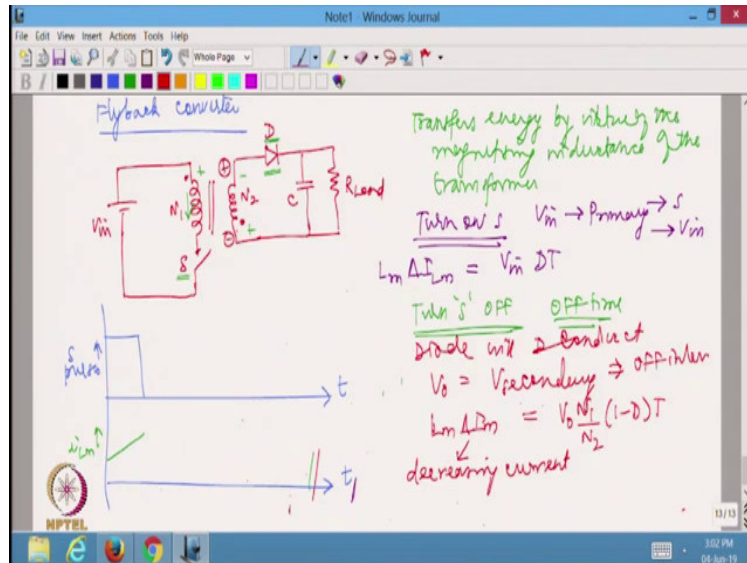 Note1 - Windows Journal
File Edit View Insert Actions Tools Help
Whole Page
B I
Flyback converter
Transfers energy by virtue of the
magnetizing inductance of the
transformer
D
N1
N2
C
RLoad
Vin
S
Turn on S Vin → Primary → S
→ Vin
Lm ΔILm = Vin DT
Turn 'S' OFF Off-time
Diode will conduct
V0 = Vsecondary ⇒ off-inter
Lm ΔIm = V0 N1/N2 (1-D)T
decreasing current
S
pulse
t
iLm
t
NPTEL
13/13
3:02 PM
04-Jun-19